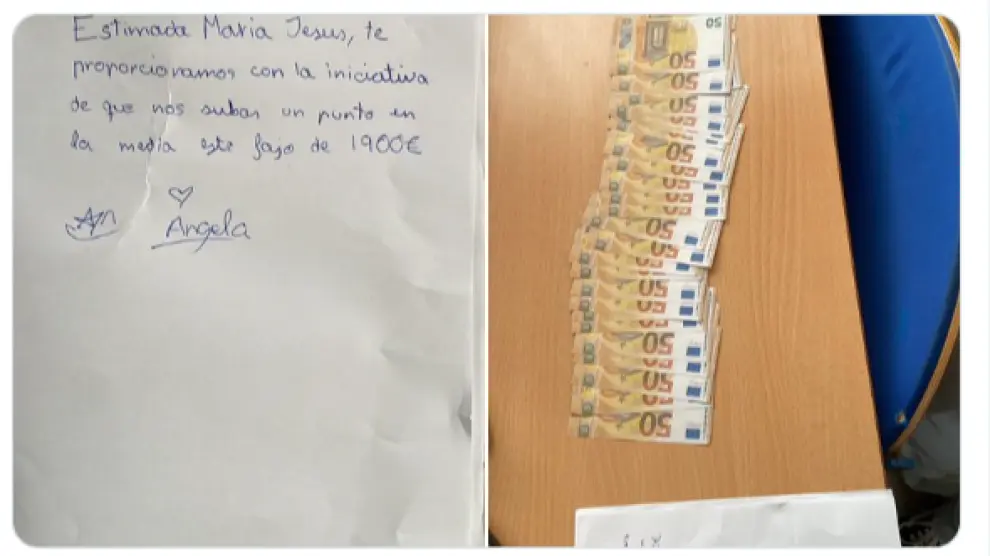 Estimada Maria Jesus, te
proporcionamos con la iniciativa
de que nos subas un punto en
la media este fajo de 1900€
Angela
50
50
50
50
50
50
50
50
50
50
50
50
50